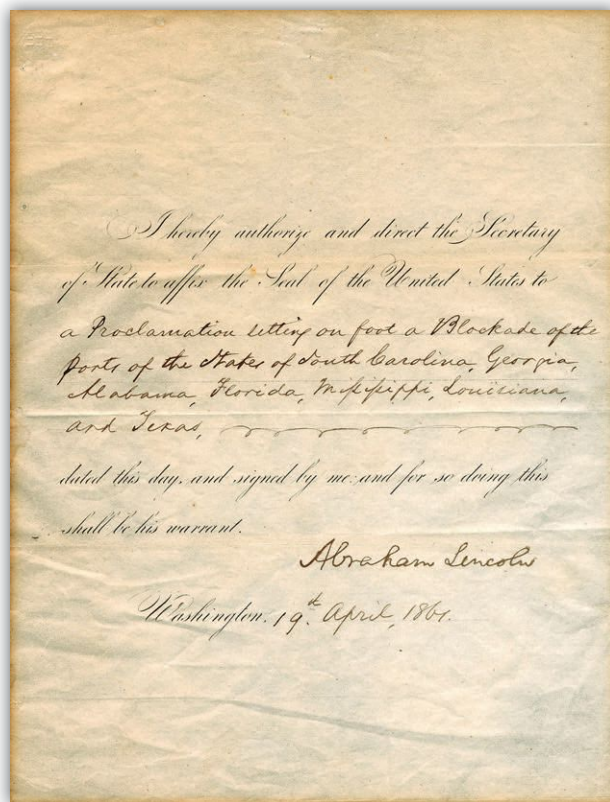 I hereby authorize and direct the Secretary
of State to affix the Seal of the United States to
a Proclamation setting on foot a Blockade of the
ports of the States of South Carolina, Georgia,
Alabama, Florida, Mississippi, Louisiana,
and Texas,
dated this day, and signed by me: and for so doing this
shall be his warrant.
Abraham Lincoln
Washington, 19th April, 1861.